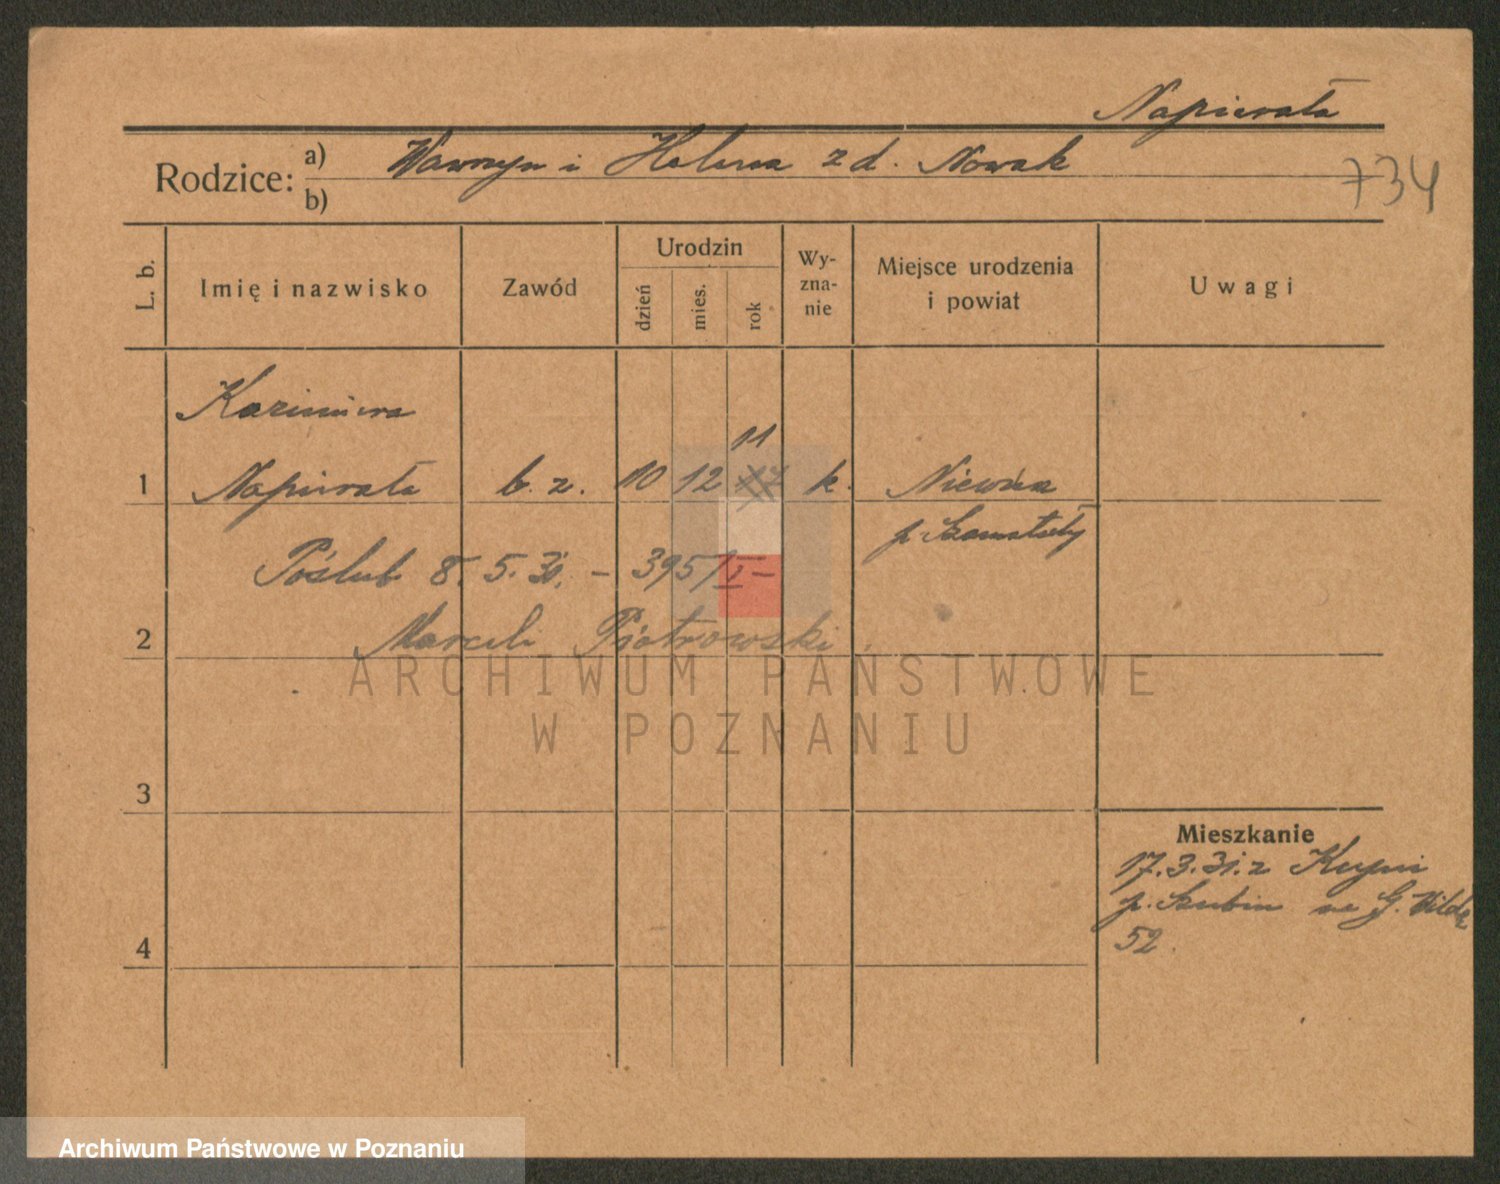 Napierała
Rodzice: a) Wawrzyn i Helena z d. Nowak
b)
734
L. b.
Imię i nazwisko
Zawód
Urodzin
dzień
mies.
rok
Wy-
zna-
nie
Miejsce urodzenia
i powiat
Uwagi
Kazimiera
11
1 Napierała b. z. 10 12 k.
p. Szamotuły
Poślub 8. 5. 31. – 395/I –
2 Marceli Piotrowski
ARCHIWUM PAŃSTWOWE
W POZNANIU
3
Mieszkanie
17.3.31. z Kcyni
p. Szubin na G. Wildę
52.
4
Archiwum Państwowe w Poznaniu